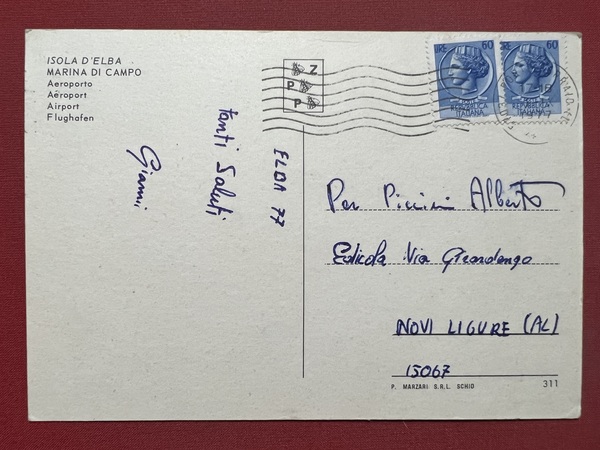 ISOLA D'ELBA
MARINA DI CAMPO
Aeroporto
Aéroport
Airport
Flughafen
Z
P
P
LIRE 60
REPUBBLICA
ITALIANA
LIRE 60
REPUBBLICA
ITALIANA
ELBA 77
Tanti Saluti
Gianni
Per Piccini Alberto
Edicola Via Girardengo
NOVI LIGURE (AL)
15067
P. MARZARI S.R.L. SCHIO
311